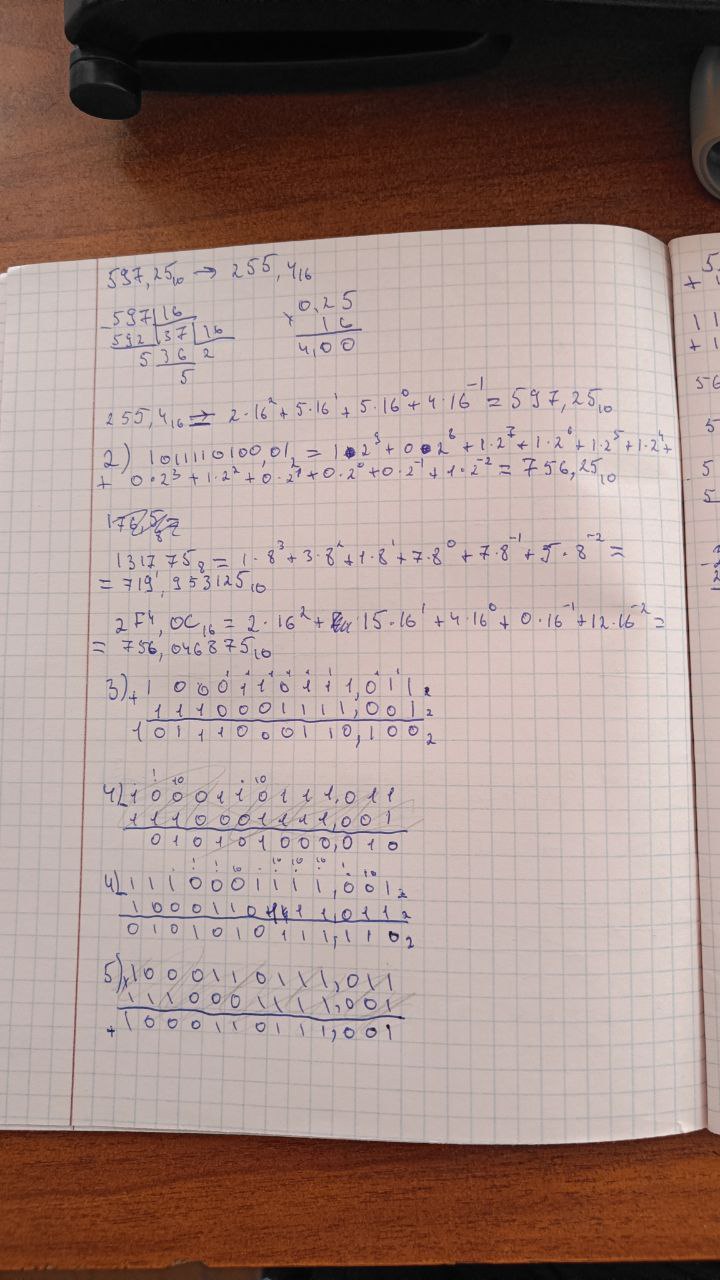 597,25₁₀ → 255,4₁₆
-597 | 16
592 | 37 | 16
5 36 2
5
0,25
× 16
4,00
255,4₁₆ ⇒ 2·16² + 5·16¹ + 5·16⁰ + 4·16⁻¹ = 597,25₁₀
2) 1011110100,01₂ = 1·2⁹ + 0·2⁸ + 1·2⁷ + 1·2⁶ + 1·2⁵ + 1·2⁴ +
+ 0·2³ + 1·2² + 0·2¹ + 0·2⁰ + 0·2⁻¹ + 1·2⁻² = 756,25₁₀
1317,75₈ = 1·8³ + 3·8² + 1·8¹ + 7·8⁰ + 7·8⁻¹ + 5·8⁻² =
= 719,953125₁₀
2F4,0C₁₆ = 2·16² + 15·16¹ + 4·16⁰ + 0·16⁻¹ + 12·16⁻² =
= 756,046875₁₀
3) + 10001101111,011₂
11100011111,001₂
101110001110,100₂
4) - 10001101111,011
11100011111,001
010101000,010
4) - 11100011111,001₂
10001101111,011₂
01010101111,110₂
5) × 10001101111,011
11100011111,001
+ 10001101111,001